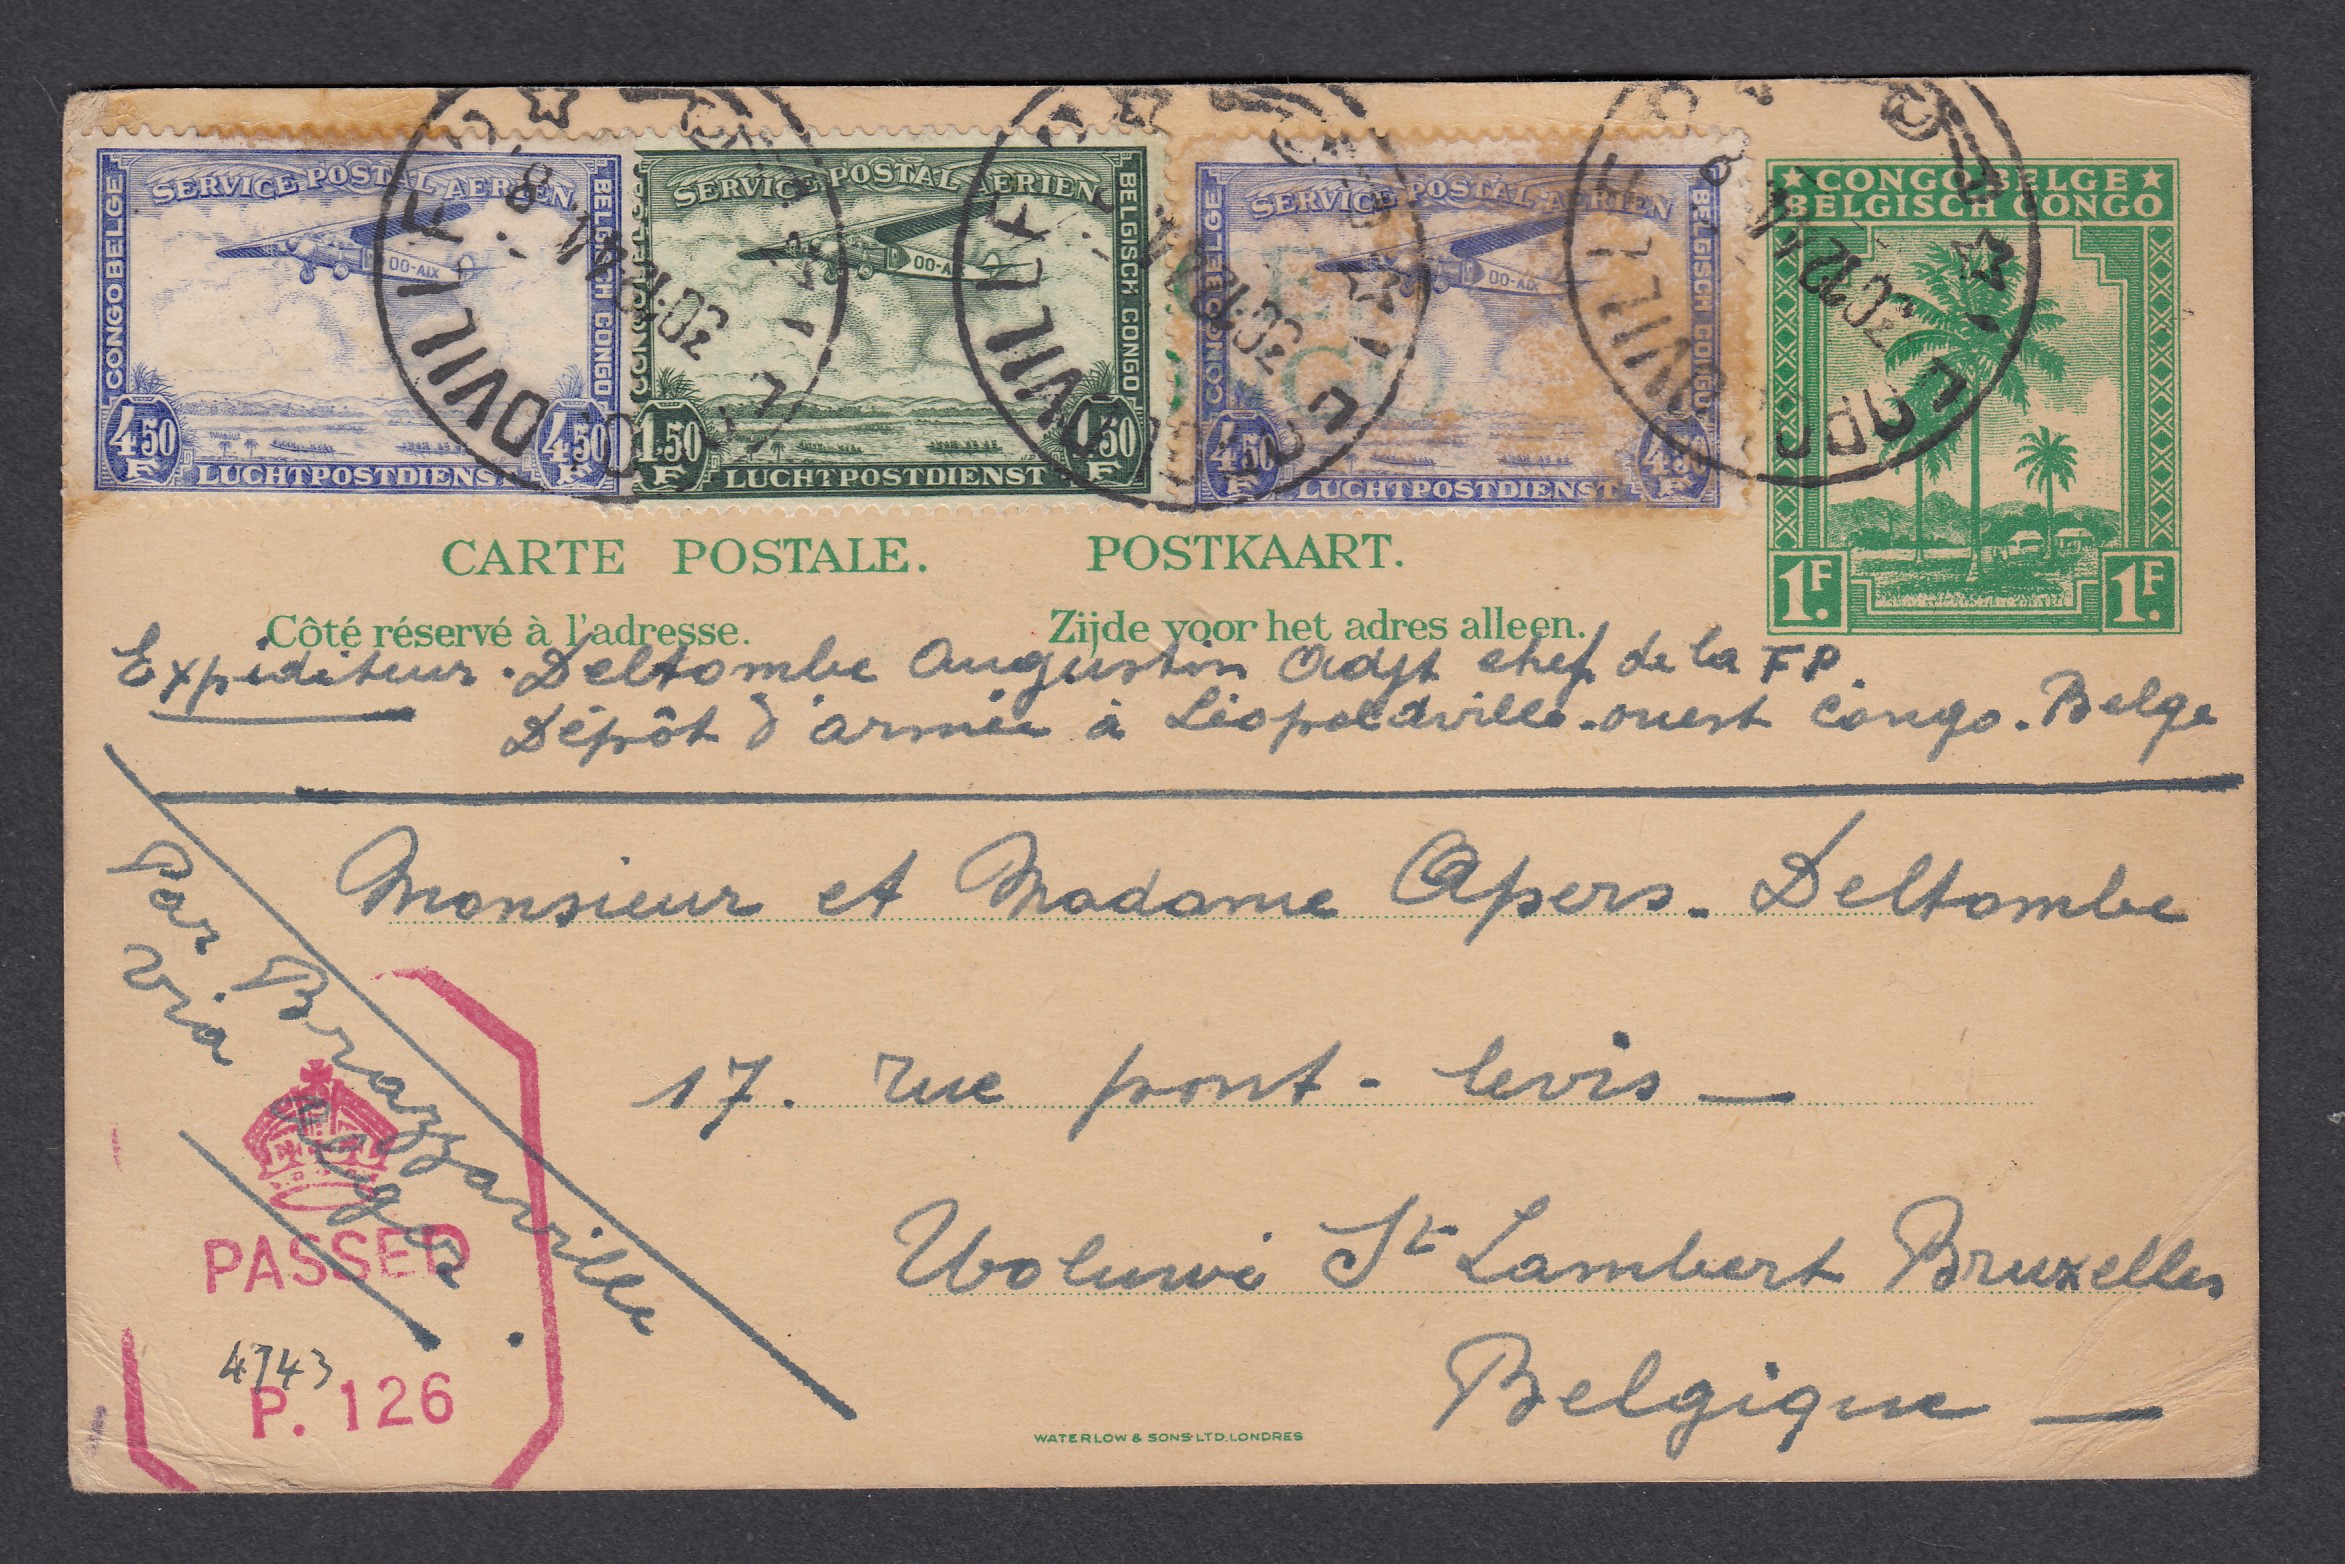 SERVICE POSTAL AERIEN
CONGO BELGE
BELGISCH CONGO
OO-AIX
4.50 F
4.50 F
LUCHTPOSTDIENST
SERVICE POSTAL AERIEN
CONGO BELGE
BELGISCH CONGO
OO-A
1.50 F
1.50 F
LUCHTPOSTDIENST
SERVICE POSTAL AERIEN
CONGO BELGE
BELGISCH CONGO
OO-AIX
4.50 F
4.50 F
LUCHTPOSTDIENST
CONGO BELGE
BELGISCH CONGO
1F.
1F.
30-12 44
30-12 44
30-12 44
CARTE POSTALE. POSTKAART.
Côté réservé à l'adresse. Zijde voor het adres alleen.
Expéditeur. Deltombe Augustin Adjt chef de la FP.
Dépôt d'armée à Léopoldville-ouest Congo-Belge
Par Brazzaville
via Alger.
Monsieur et Madame Apers-Deltombe
17. rue pont-levis
Woluwé St Lambert Bruxelles
Belgique
PASSED
4743
P. 126
WATERLOW & SONS LTD. LONDRES